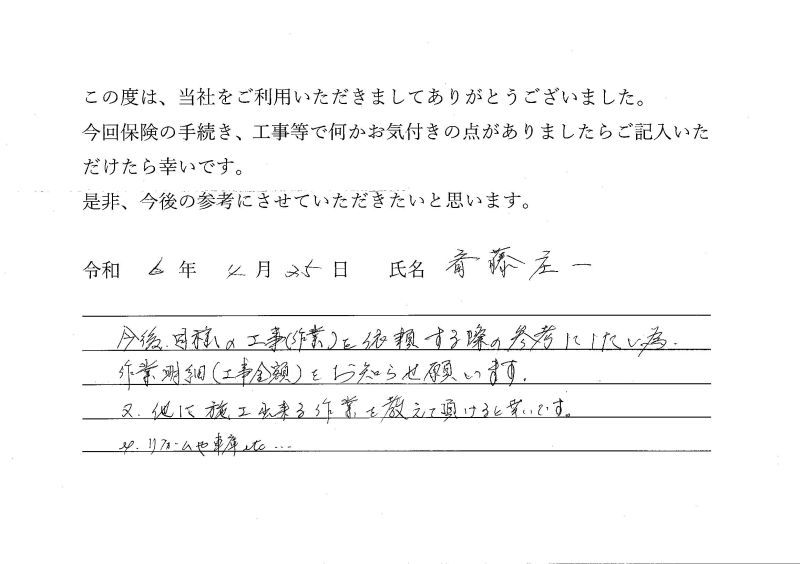 この度は、当社をご利用いただきましてありがとうございました。
今回保険の手続き、工事等で何かお気付きの点がありましたらご記入いた
だけたら幸いです。
是非、今後の参考にさせていただきたいと思います。
令和 6 年 4 月 25 日 氏名 斉藤庄一
今後、同様の工事(作業)を依頼する際の参考にしたい為、
作業明細(工事金額)をお知らせ願います。
又、他に施工出来る作業を教えて頂けると幸いです。
リフォームや車庫etc...